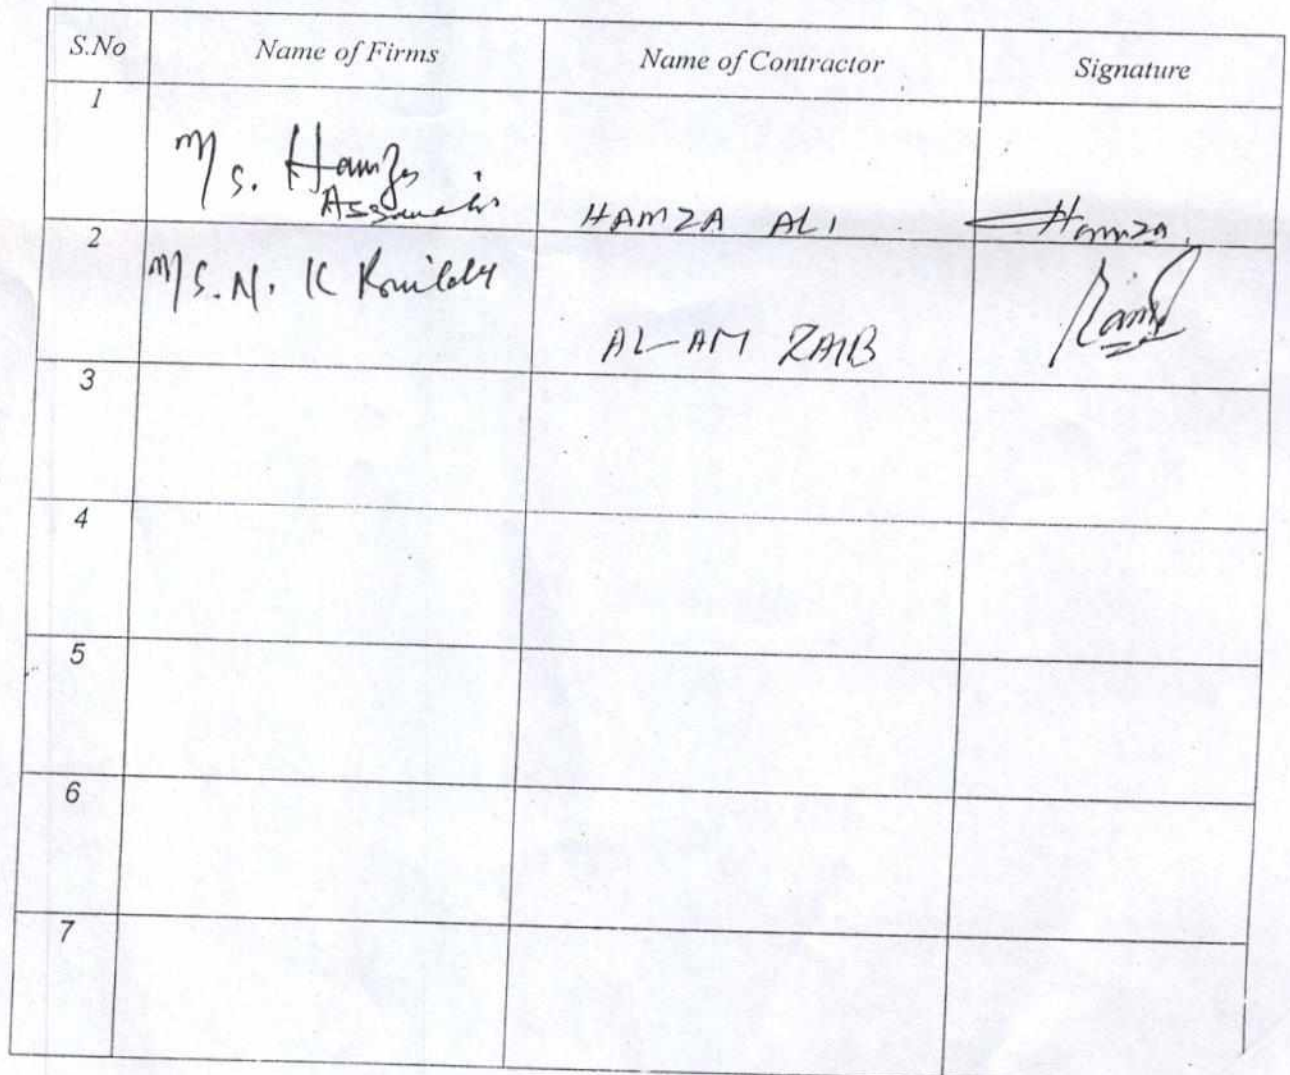 S.No Name of Firms Name of Contractor Signature
1
M/s. Hamza
Associates HAMZA ALI Hamza
2
M/S. N. K Builders
ALAM ZAIB
3
4
5
6
7